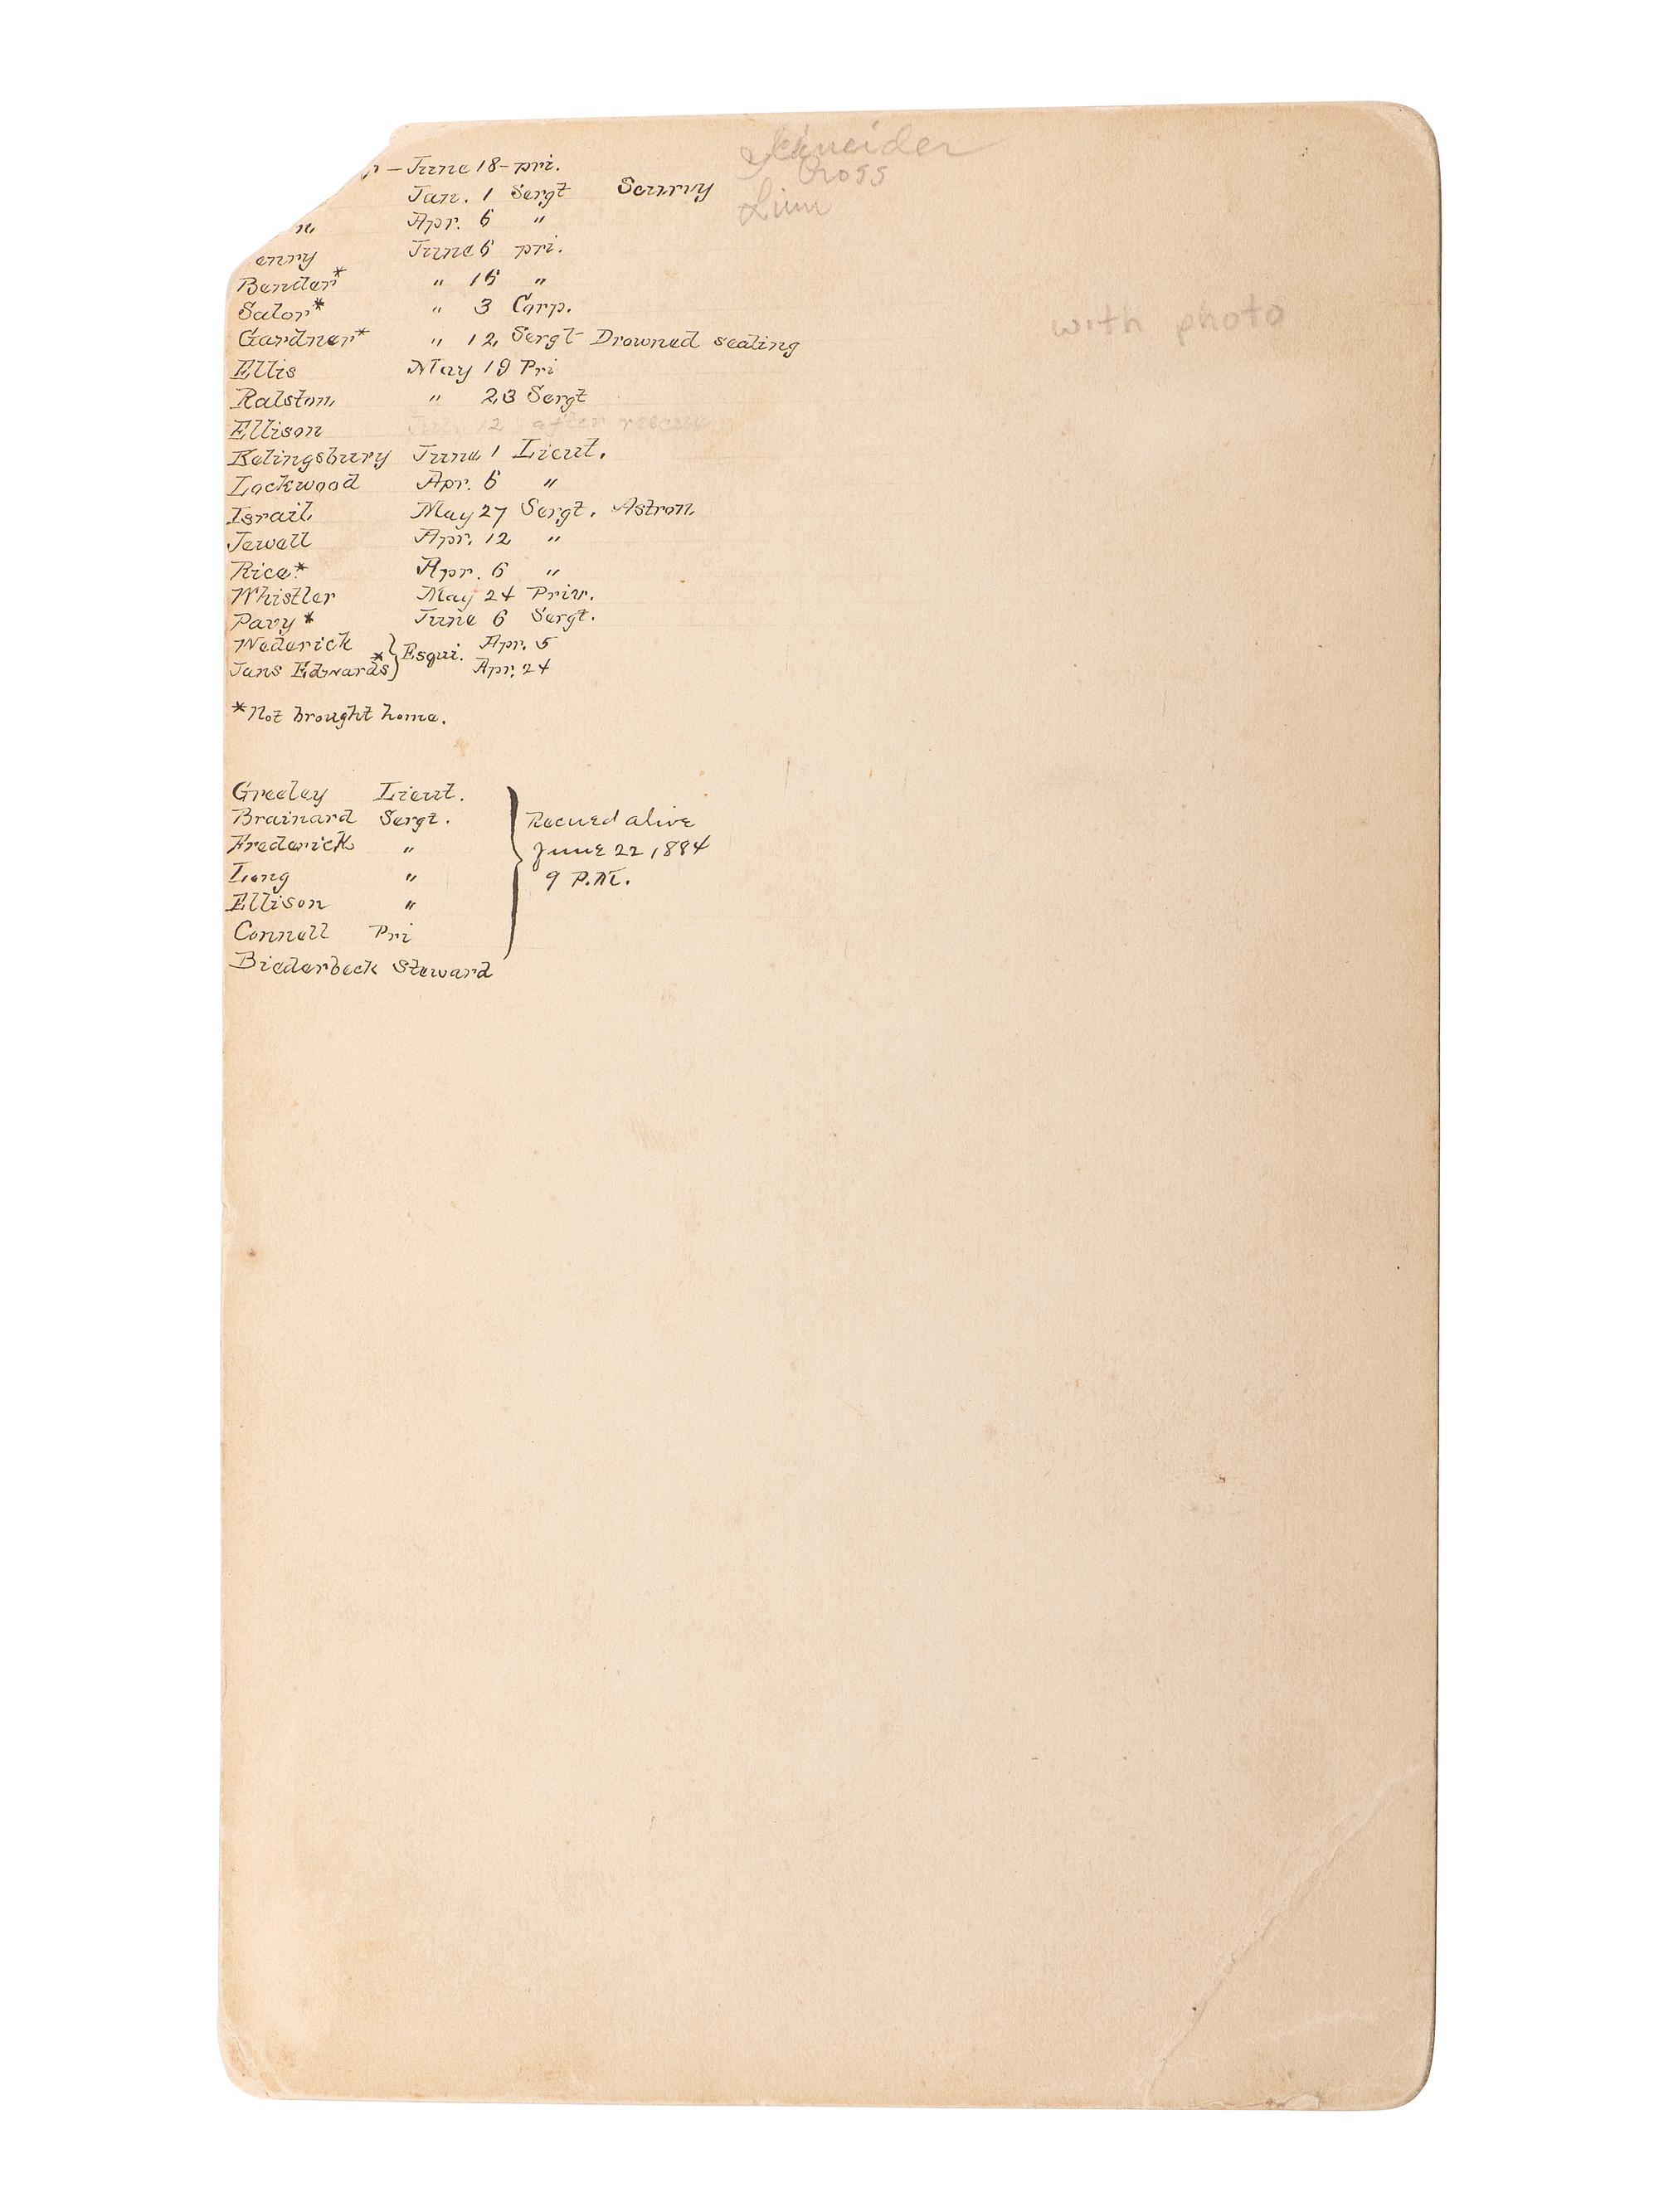 r – June 18 – pri. Schneider
Jan. 1 Sergt Scurvy Cross
n Apr. 6 " Linn
enry June 6 pri.
Bender* " 16 "
Salor* " 3 Corp. with photo
Gardner* " 12 Sergt Drowned sealing
Ellis May 19 Pri
Ralston " 23 Sergt
Ellison July 12 after rescue
Kelingsbury June 1 Lieut.
Lockwood Apr. 6 "
Israil May 27 Sergt. Astron
Jewell Apr. 12 "
Rice* Apr. 6 "
Whistler May 24 Priv.
Pavy* June 6 Sergt.
Wederick } Esqui. Apr. 5
Jans Edwards* Apr. 24
*Not brought home.
Greeley Lieut.
Brainard Sergt. Recued alive
Frederick " June 22, 1884
Long " 9 P.M.
Ellison "
Connell Pri
Biederbeck Steward